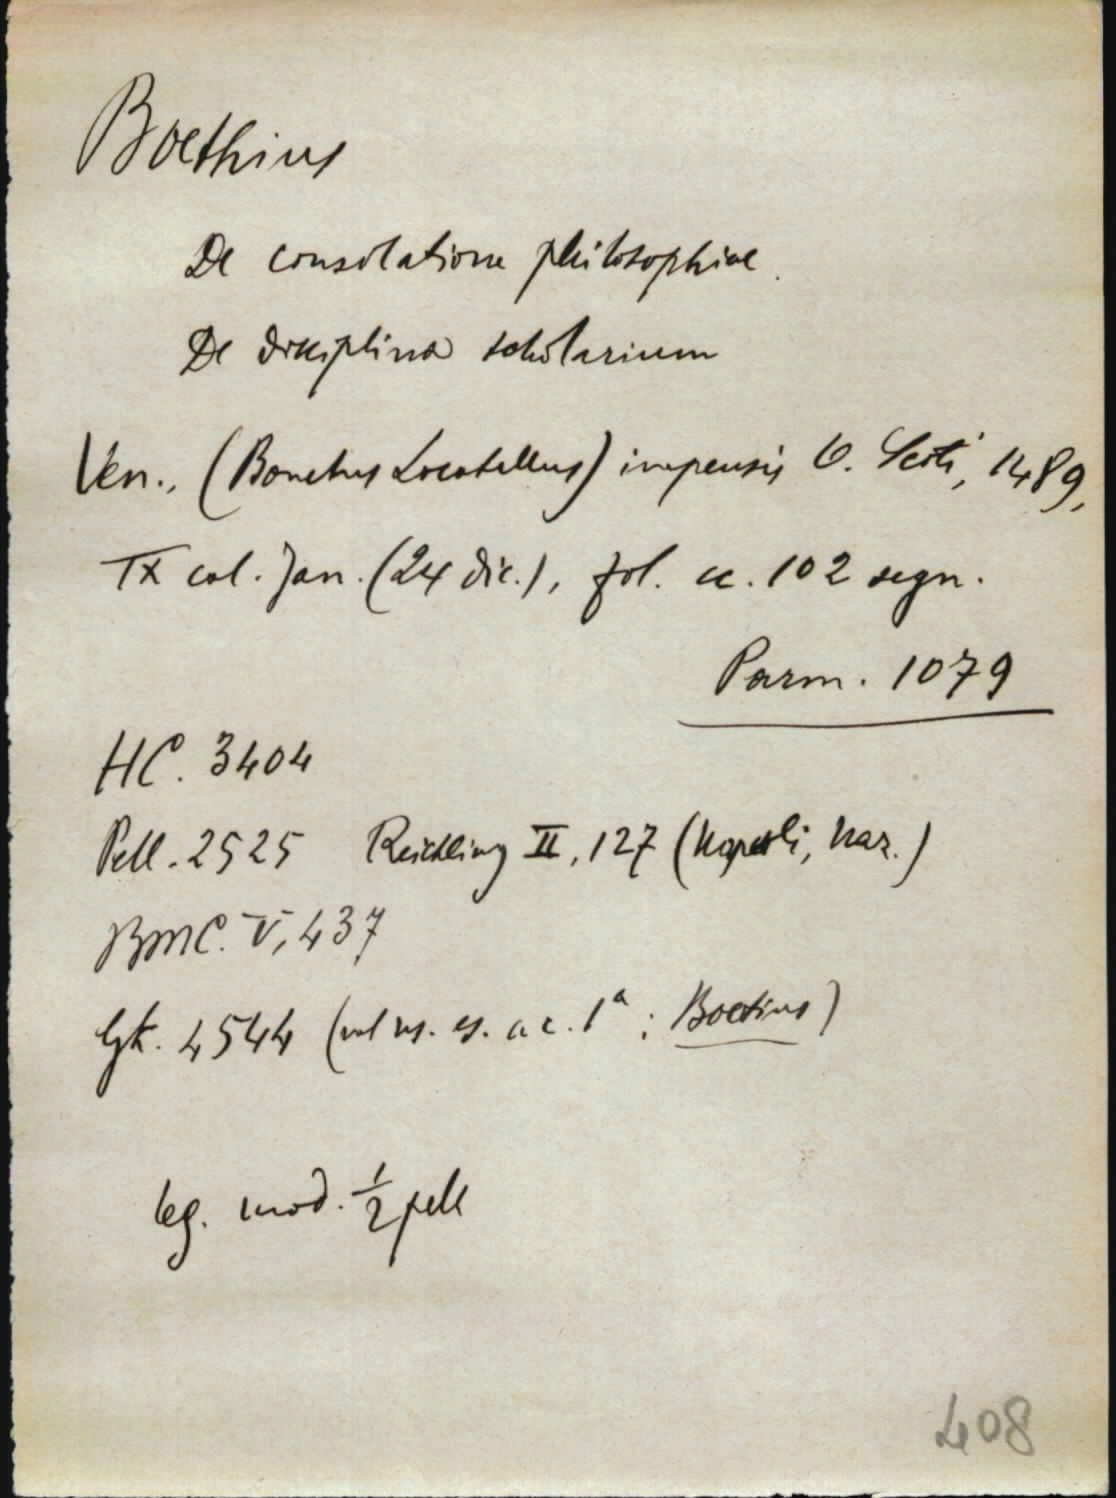 Boethius
De consolatione philosophiae.
De disciplina scholarium
Ven., (Bonetus Locatellus) impensis O. Scoti, 1489,
IX cal. Jan. (24 dic.), fol. cc. 102 segn.
Parm. 1079
HC. 3404
Pell. 2525 Reichling II, 127 (Napoli, Naz.)
BMC. V, 437
Gk. 4544 (nel ns. es. a c. 1ª : Boetius)
leg. mod. ½ pelle
408